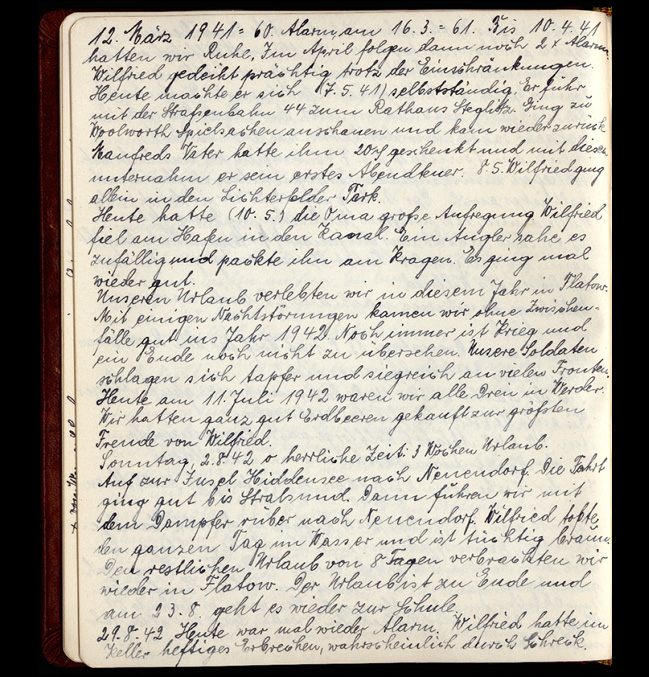 12. März 1941 = 60. Alarm, am 16.3. = 61. Bis 10.4.41
hatten wir Ruhe, Im April folgen dann noch 2 x Alarm.
Wilfried gedeikt prächtig trotz der Einschränkungen.
Heute machte er sich (7.5.41) selbstständig. Er fuhr
mit der Straßenbahn 44 zum Rathaus Steglitz. Ging zu
Woolworth Spielsachen anschauen und kam wieder zurück
Manfreds Vater hatte ihm 20 geschenkt und mit diesen
unternahm er sein erstes Abendteuer. 8.5. Wilfried ging
allein in den Lichterfelder Park.
Heute hatte (10.5.) die Oma große Aufregung Wilfried
fiel am Hafen in den Kanal. Ein Angler sahe es
zufällig und packte ihn am Kragen. Es ging mal
wieder gut.
Unseren Urlaub verlebten wir in diesem Jahr in Flatow.
Mit einigen Nachtstörungen kamen wir ohne Zwischen-
fälle gut ins Jahr 1942. Noch immer ist Krieg und
ein Ende noch nicht zu übersehen. Unsere Soldaten
schlagen sich tapfer und siegreich an vielen Fronten.
Heute am 11. Juli 1942 waren wir alle Drei in Werder.
Wir hatten ganz gut Erdbeeren gekauft zur größten
Freude von Wilfried.
Sonntag, 2.8.42 o herrliche Zeit: 3 Wochen Urlaub.
Auf zur Insel Hiddensee nach Neuendorf. Die Fahrt
ging gut bis Stralsund. Dann führen wir mit
dem Dampfer rüber nach Neuendorf. Wilfried tobte
den ganzen Tag im Wasser und ist tüchtig braun.
Den restlichen Urlaub von 8 Tagen verbrachten wir
wieder in Flatow. Der Urlaub ist zu Ende und
am 23.8. geht es wieder zur Schule.
29.8.42 Heute war mal wieder Alarm. Wilfried hatte im
Keller heftiges Erbrechen, wahrscheinlich durch Schreck.